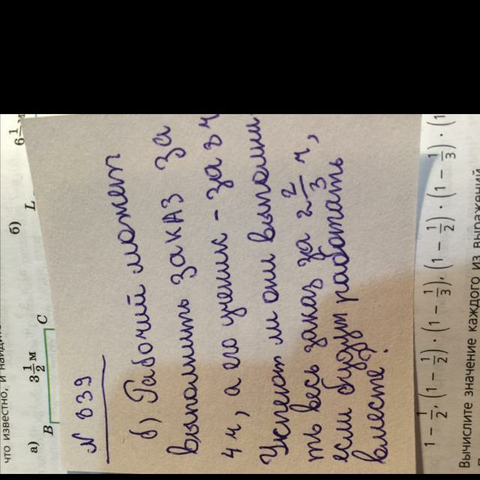 что известно, и найдите
а)
б)
3 1/2 м
6 1/2 м
B
C
L
N 839
б) Рабочий может
выполнить заказ за
4ч, а его ученик - за 8ч
Успеют ли они выполни
ть весь заказ за 2 2/3 ч,
если будут работать
вместе?
1 - 1/2, (1 - 1/2) · (1 - 1/3), (1 - 1/2) · (1 - 1/3) · (1
Вычислите значение каждого из выражений